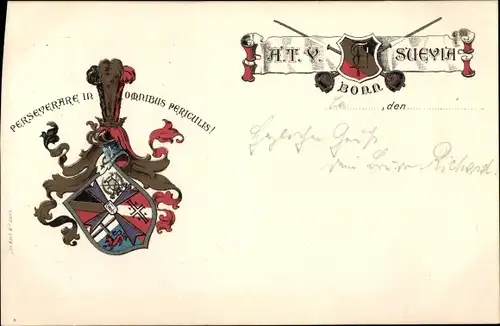 PERSEVERARE IN OMNIBUS PERICULIS!
A.T.V. SUEVIA
BONN
, den
Herzlichen Gruß
dein Bruder Richard.